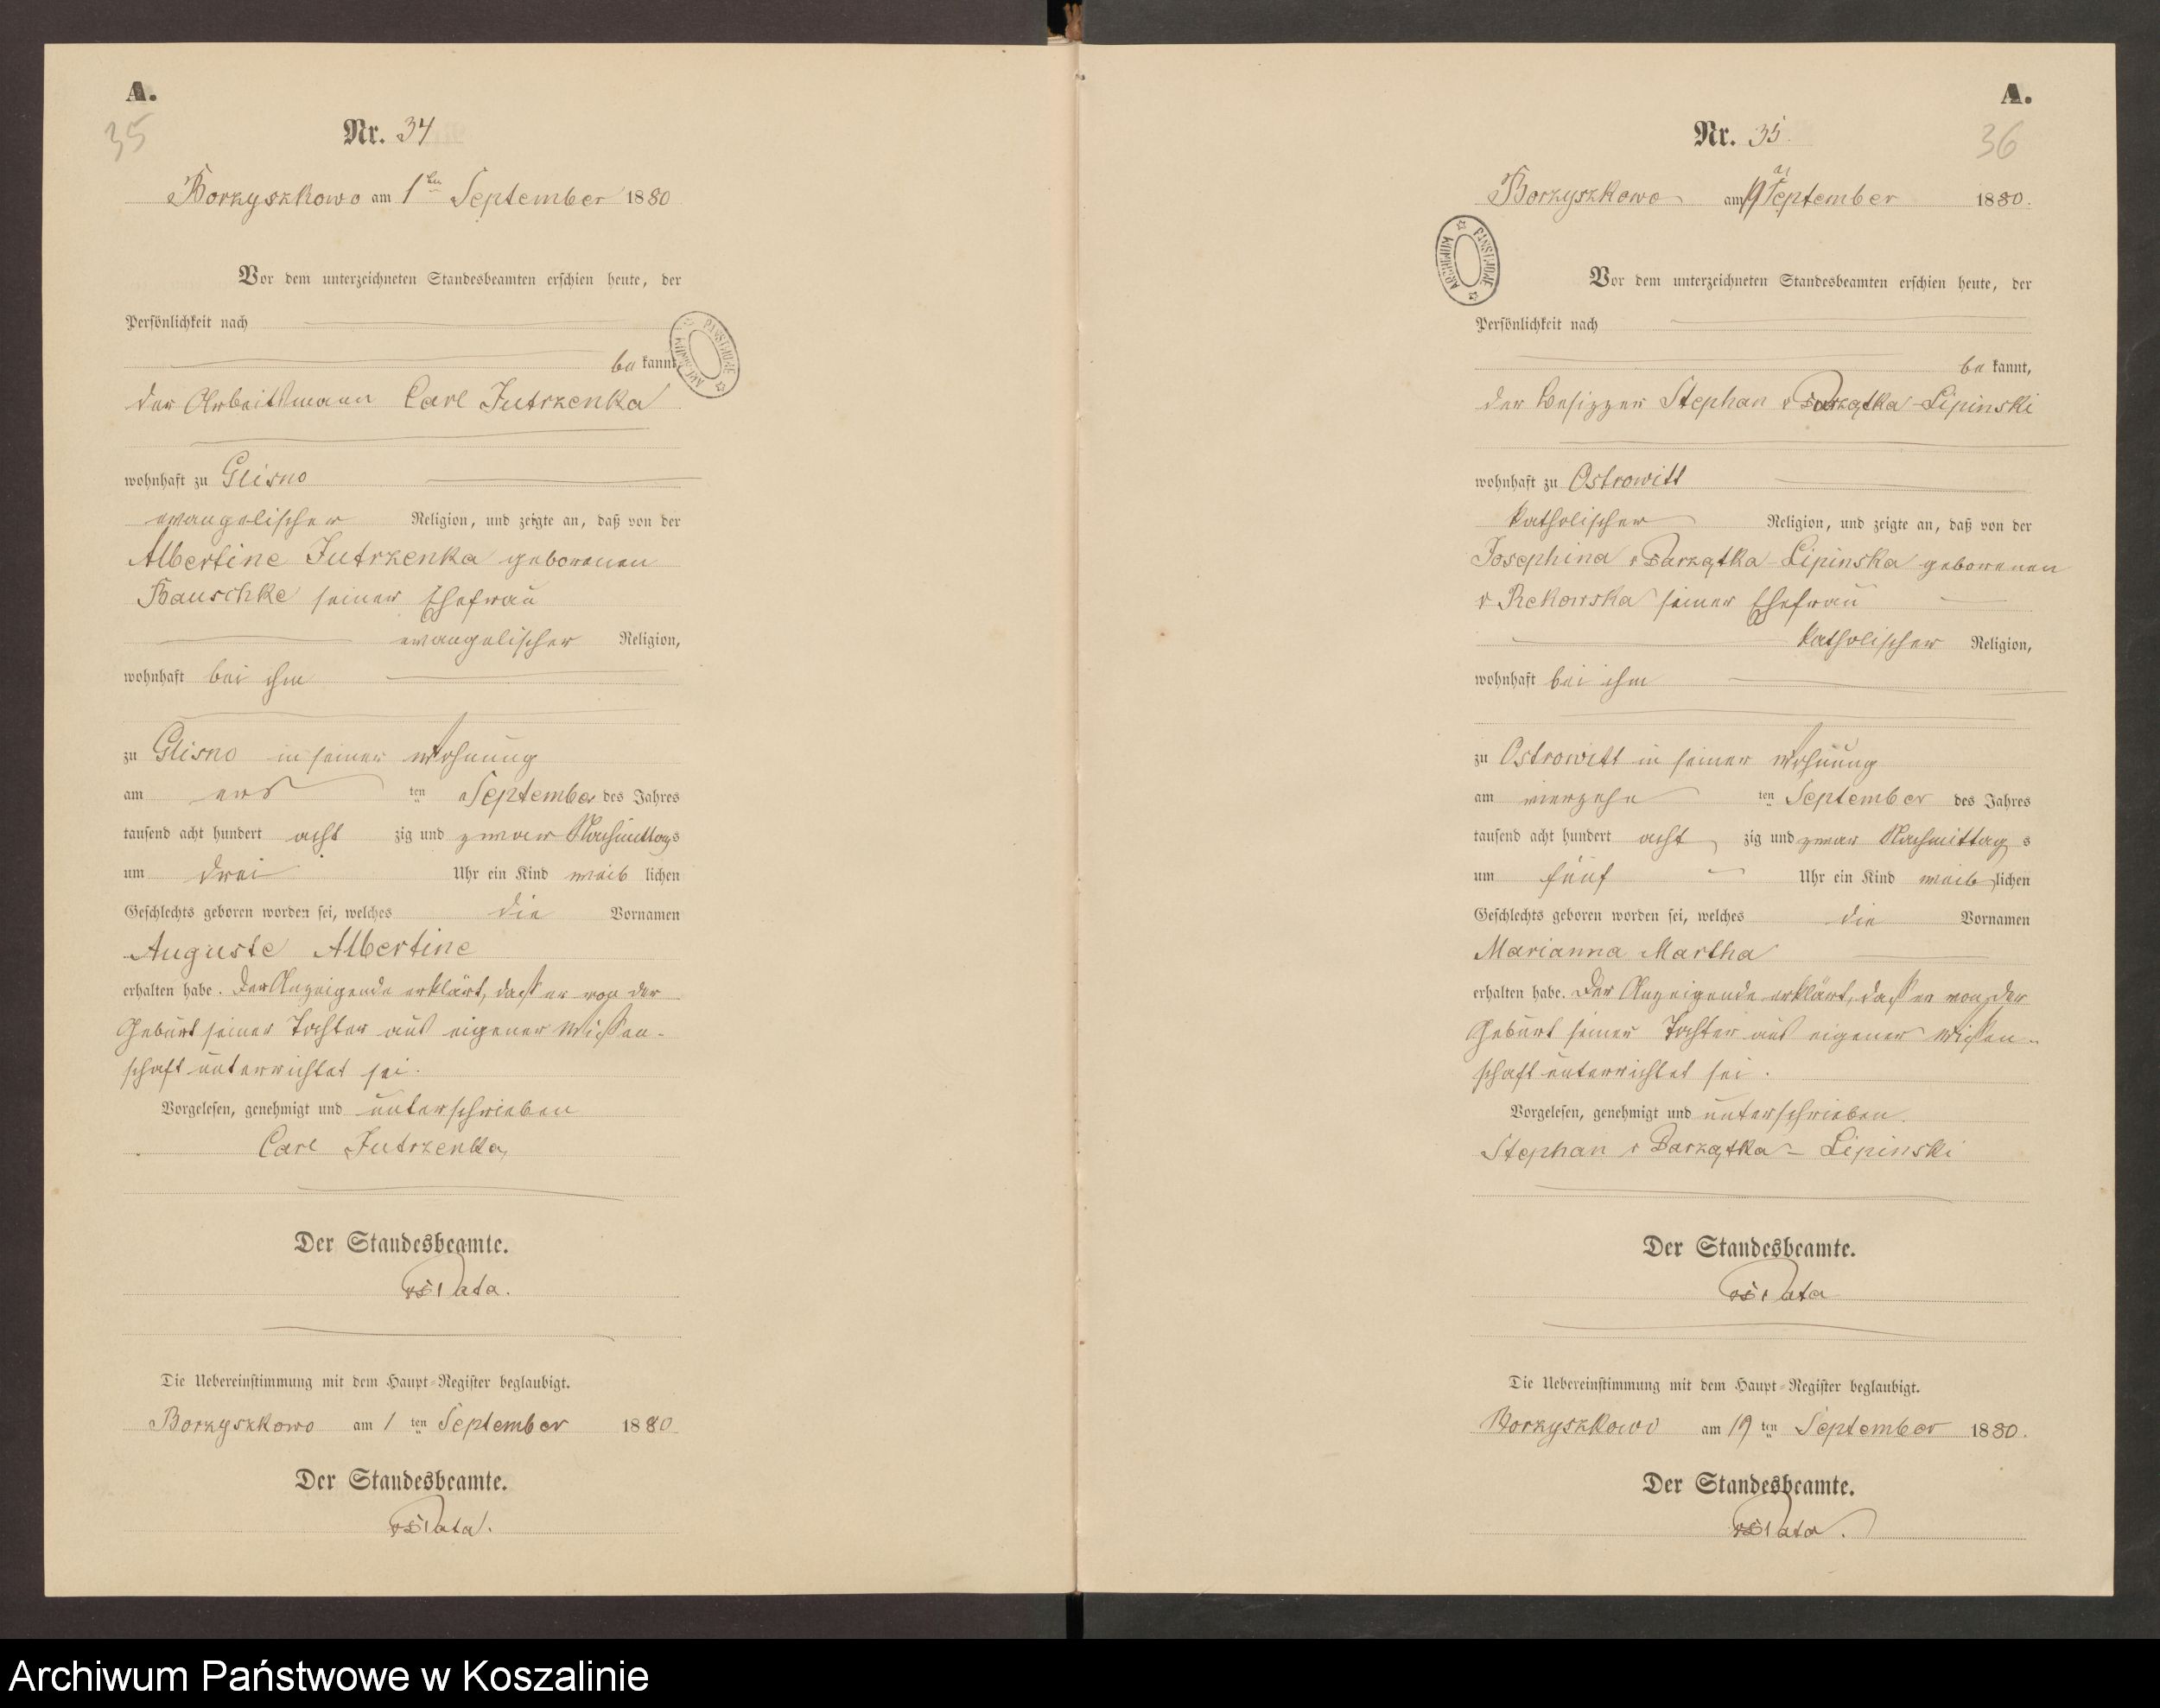 A.
35
Nr. 34
Borzyszkowo am 1ten September 1880
Vor dem unterzeichneten Standesbeamten erschien heute, der
Persönlichkeit nach
be kannt,
der Arbeitsmann Carl Jutrzenka
wohnhaft zu Glisno
evangelischer Religion, und zeigte an, daß von der
Albertine Jutrzenka geborenen
Bauschke seiner Ehefrau
evangelischer Religion,
wohnhaft bei ihm
zu Glisno in seiner Wohnung
am ers ten September des Jahres
tausend acht hundert acht zig und zwar Nachmittags
um drei Uhr ein Kind weib lichen
Geschlechts geboren worden sei, welches die Vornamen
Auguste Albertine
erhalten habe. Der Anzeigende erklärt, daß er von der
Geburt seiner Tochter aus eigener Wissen-
schaft unterrichtet sei.
Vorgelesen, genehmigt und unterschrieben
Carl Jutrzenka,
Der Standesbeamte.
Die Uebereinstimmung mit dem Haupt-Register beglaubigt.
Borzyszkowo am 1 ten September 1880
Der Standesbeamte.
A.
36
Nr. 35.
Borzyszkowo am 19 September 1880.
ARCHIWUM PAŃSTWOWE
Vor dem unterzeichneten Standesbeamten erschien heute, der
Persönlichkeit nach
be kannt,
der Besitzer Stephan v Darzątka-Lipinski
wohnhaft zu Ostrowitt
katholischer Religion, und zeigte an, daß von der
Josephina v Darzątka-Lipinska geborenen
v Rekowska seiner Ehefrau
katholischer Religion,
wohnhaft bei ihm
zu Ostrowitt in seiner Wohnung
am vierzehn ten September des Jahres
tausend acht hundert acht zig und zwar Nachmittag s
um fünf Uhr ein Kind weib lichen
Geschlechts geboren worden sei, welches die Vornamen
Marianna Martha
erhalten habe. Der Anzeigende erklärt, daß er von der
Geburt seiner Tochter aus eigener Wissen-
schaft unterrichtet sei.
Vorgelesen, genehmigt und unterschrieben.
Stephan v Darzątka-Lipinski
Der Standesbeamte.
Die Uebereinstimmung mit dem Haupt-Register beglaubigt.
Borzyszkowo am 19 ten September 1880.
Der Standesbeamte.
Archiwum Państwowe w Koszalinie